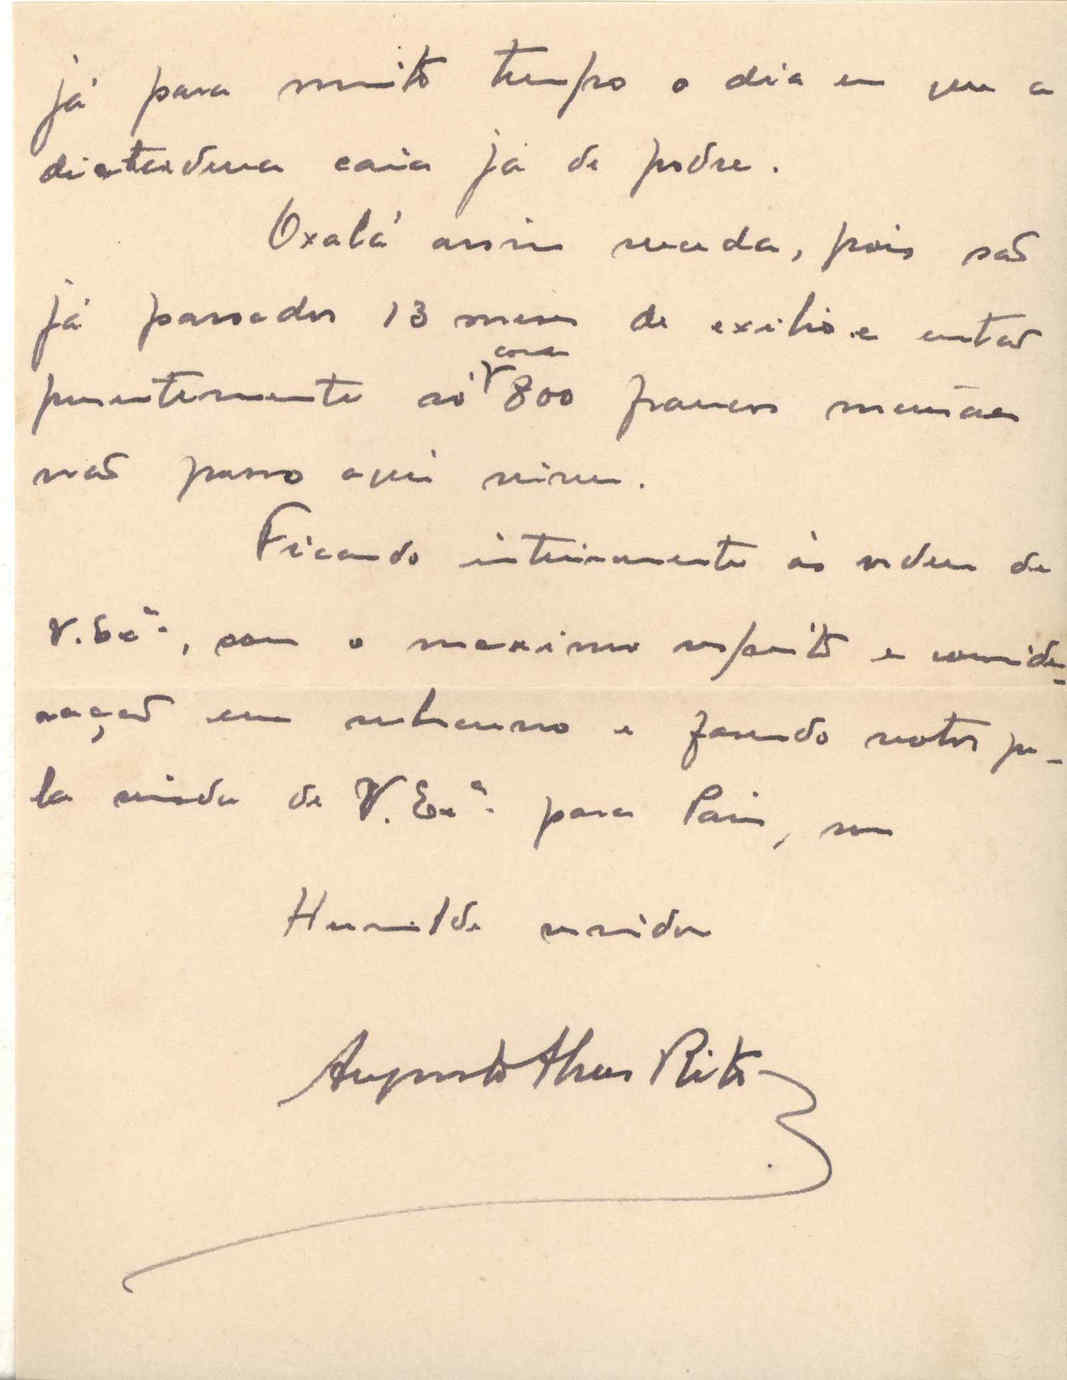 já para muito tempo o dia em que a
dictadura caia já de podre.
Oxalá assim suceda, pois são
já passados 13 meses de exilio e então
presentemente só com 800 francos mensaes
não posso aqui viver.
Ficando inteiramente às ordens de
V. Exª., com o maximo respeito e conside-
ração me subscrevo e fazendo votos pe-
la vinda de V. Exª. para Paris, sou
Humilde servidor
Augusto Alves Rito